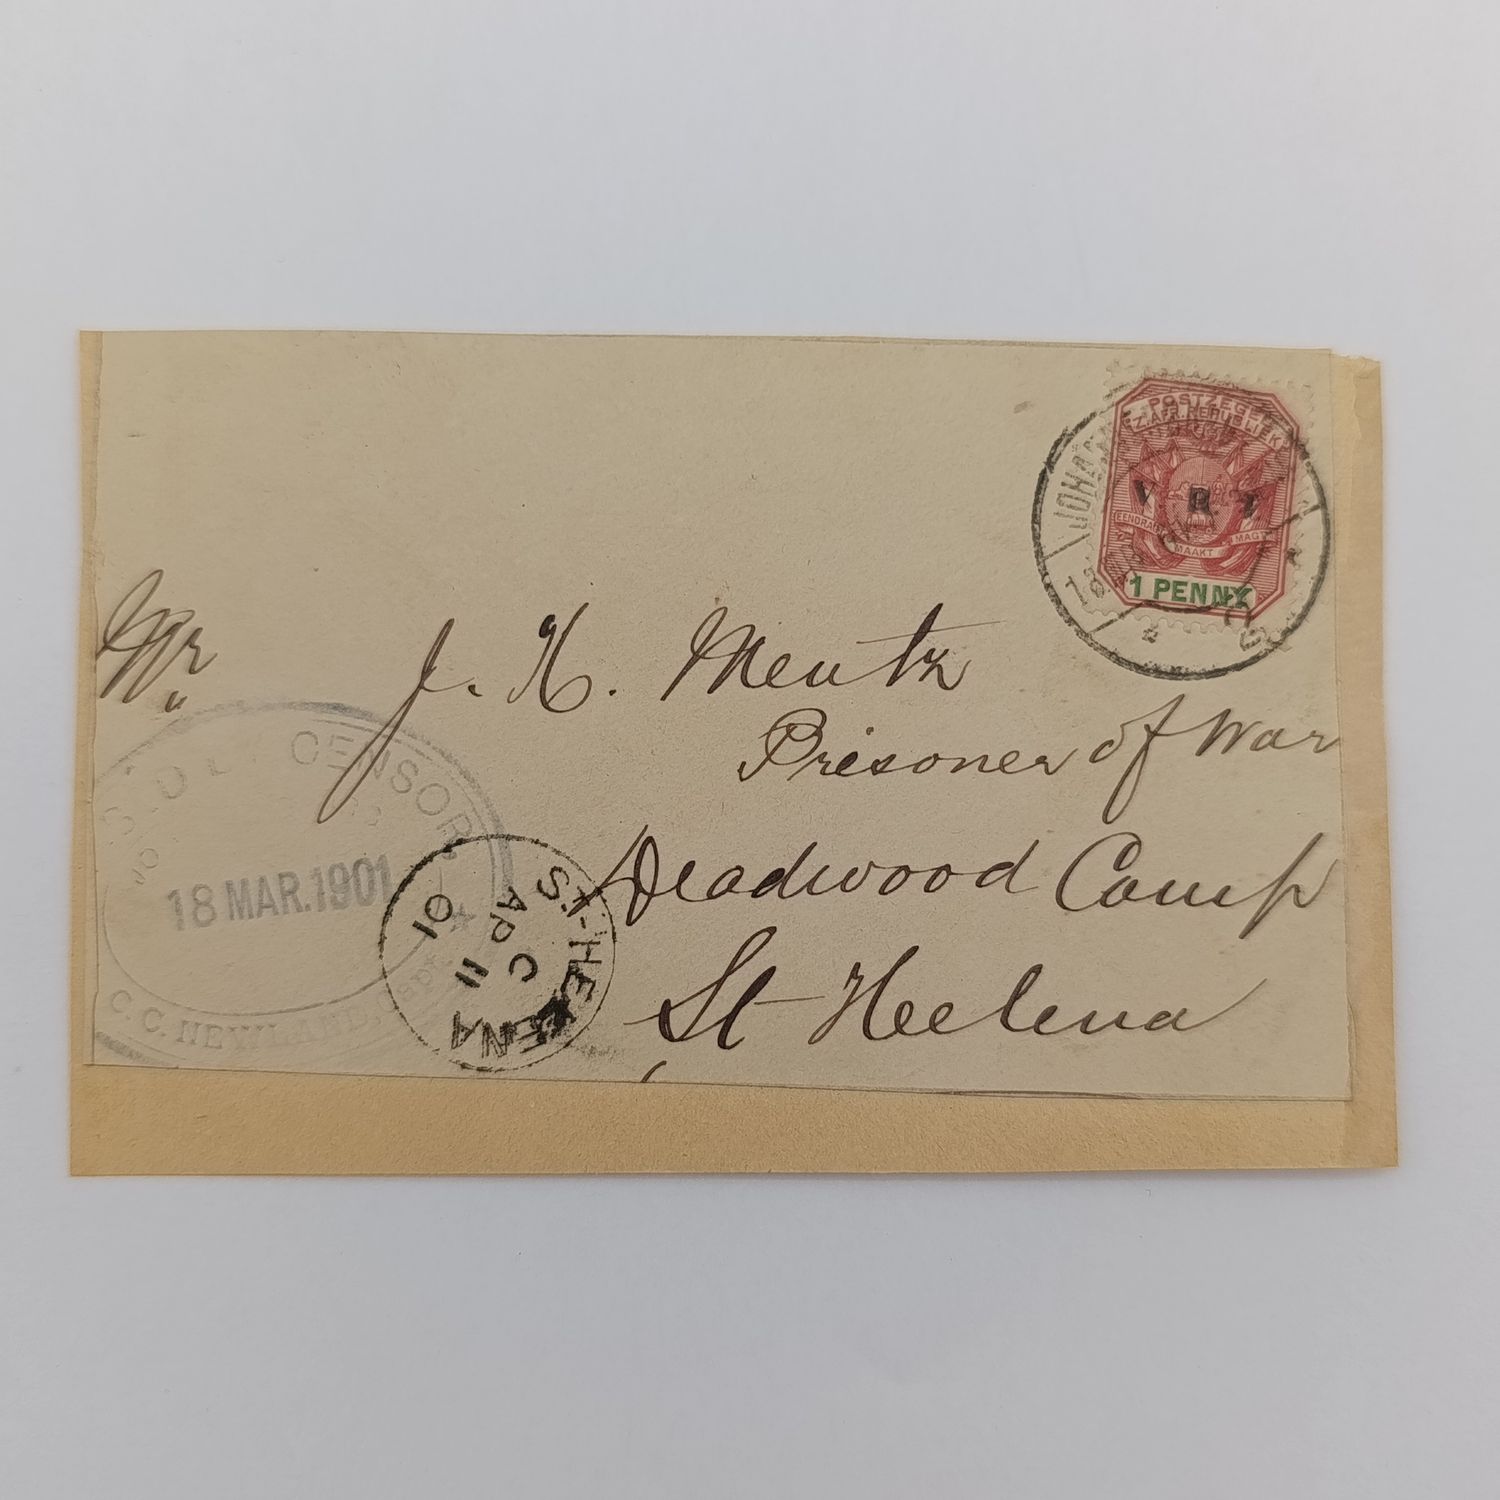 POSTZEGEL
Z. AFR. REPUBLIEK
V. R. I.
EENDRAGT MAAKT MAGT
1 PENNY
Mr J. H. Mentz
Prisoner of War
Deadwood Camp
St Heelena
CENSOR
18 MAR. 1901
C. C. NEWLAND
ST. HELENA
C
AP 11
01